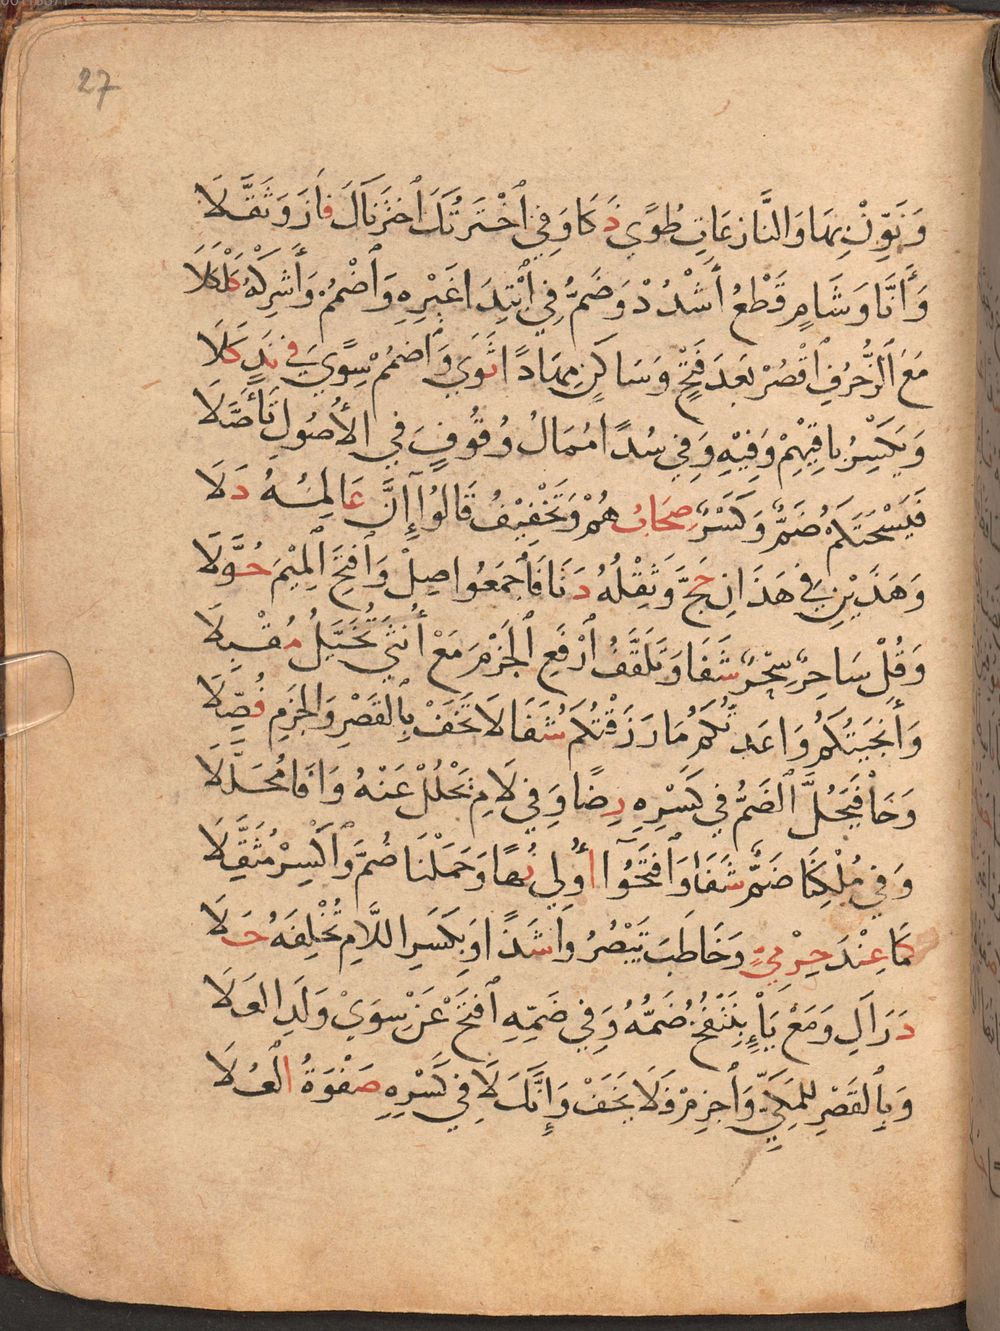 27
وَنَوِّنْ بِهَا وَالنَّازِعَاتِ طُوًى ذَكَا وَفِي ٱخْتَرْتُكَ ٱخْتَرْنَاكَ فَازَ وَثَقَّلَا
وَأَنَّا وَشَامٍ قَطْعُ أَشْدُدْ وَضَمُّ فِي ٱبْتِدَا غَيْرِهِ وَٱضْمُمْ وَأَشْرِكْهُ كَلْكَلَا
مَعَ ٱلزُّخْرُفِ ٱقْصُرْ بَعْدَ فَتْحٍ وَسَاكِنٍ مِهَادًا ثَوَى وَٱضْمُمْ سِوًى فِي نَدٍ كَلَا
وَيَكْسِرُ بَاقِيْهِمْ وَفِيْهِ وَفِي سُدًا مُمَالُ وُقُوفٍ فِي الأُصُولِ تَأَصَّلَا
فَيَسْحَتَكُمْ ضَمٌّ وَكَسْرٌ صِحَابُهُمْ وَتَخْفِيْفُ قَالُوٓا إِنَّ عَالِمُهُ دَلَا
وَهَذَيْنِ فِي هَذَانِ حَجَّ وَثِقْلُهُ دَنَا فَٱجْمَعُوا صِلْ وَٱفْتَحِ ٱلْمِيْمَ حُوَّلَا
وَقُلْ سَاحِرٍ سِحْرٍ شَفَا وَتَلَقَّفُ ٱرْفَعِ ٱلْجَزْمَ مَعْ أُنْثَى تُخَيَّلُ مُقْبِلَا
وَأَنْجَيْتُكُمْ وَاعَدتُّكُمْ مَا رَزَقْتُكُمْ شَفَا لَا تَخَفْ بِٱلْقَصْرِ وَالْجَزْمِ فُصِّلَا
وَحَا فَيَحُلَّ ٱلضَّمُّ فِي كَسْرِهِ رِضًا وَفِي لَامِ يَحْلُلْ عَنْهُ وَافَا مُحَلَّلَا
وَفِي مُلْكِنَا ضَمٌّ شَفَا وَٱفْتَحُوٓا أُولِي نُهًا وَحَمَلْنَا ضُمَّ وَٱكْسِرْ مُثَقِّلَا
كَمَا عِنْدَ حِرْمِيٍّ وَخَاطَبَ تَبْصُرُوا شَذًا وَبِكَسْرِ اللَّامِ تُخْلِفَهُ حَلَا
دَرَاكِ وَمَعْ يَاءٍ بِنَنْفُخُ ضَمُّهُ وَفِي ضَمِّهِ ٱفْتَحْ عَنْ سِوَى وَلَدِ العَلَا
وَبِٱلْقَصْرِ لِلْمَكِّيِّ وَٱجْزِمْ فَلَا يَخَفْ وَإِنَّكَ لَا فِي كَسْرِهِ صَفْوَةُ الْعُلَا